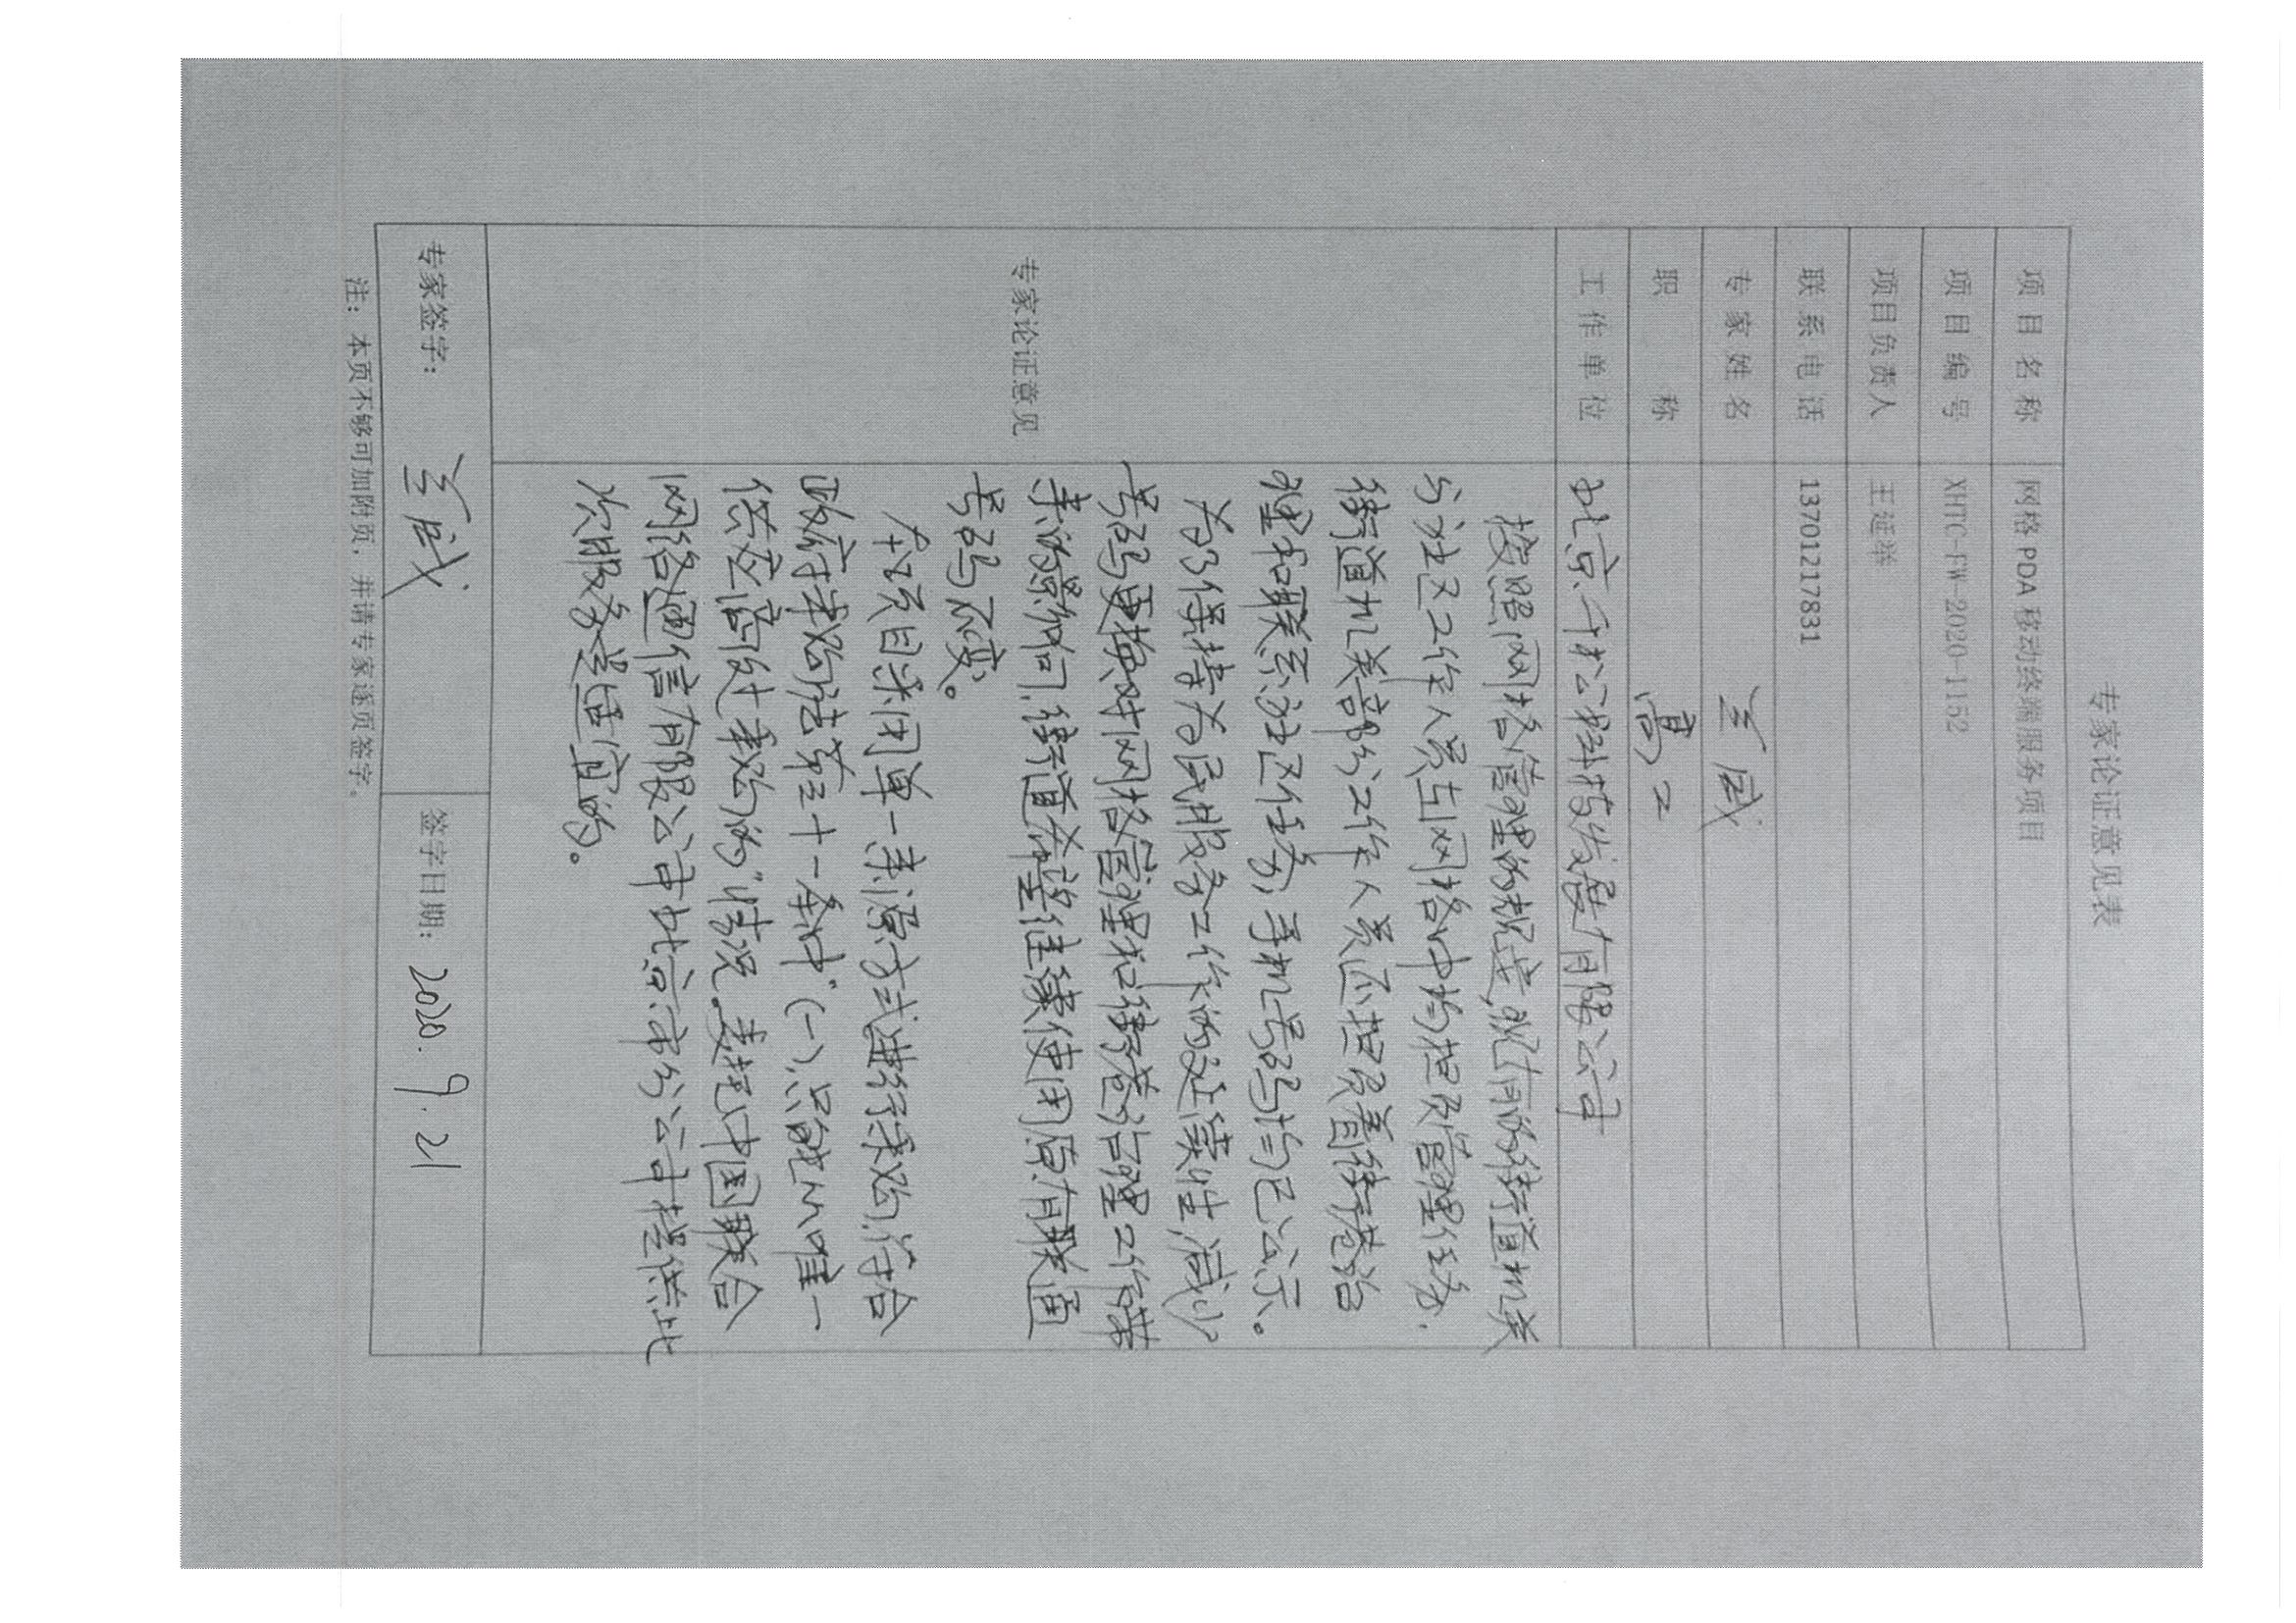 专家论证意见表
项目名称 网格PDA移动终端服务项目
项目编号 XHTC-FW-2020-1152
项目负责人 王延举
联系电话 13701217831
专家姓名 兰威
职称 高工
工作单位 北京 科技发展有限公司
专家论证意见
按照网格管理的规定,现有的街道机关
与社区工作人员在网格中均担负管理任务.
街道机关部分工作人员还担负着街巷治
理和联系社区任务,手机号码均已公示。
为了保持为民服务工作的延续性,减少
号码更换对网格管理和街巷治理工作带
来的影响,街道希望继续使用原有联通
号码不变。
本项目采用单一来源方式进行采购,符合
政府采购法第三十一条中"(一)只能从唯一
供应商处采购的"情况.选择中国联合
网络通信有限公司北京市分公司提供此
次服务是适宜的。
专家签字: 兰威 签字日期: 2020.9.21
注:本页不够可加附页,并请专家逐页签字。